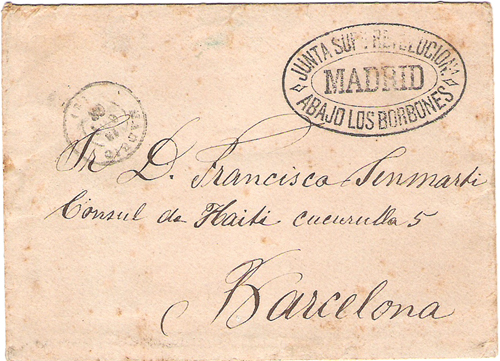 JUNTA SUPR. REVOLUCIONA
MADRID
ABAJO LOS BORBONES
MADRID
Sr. D. Francisco Senmarti
Consul de Haiti cucurulla 5
Barcelona